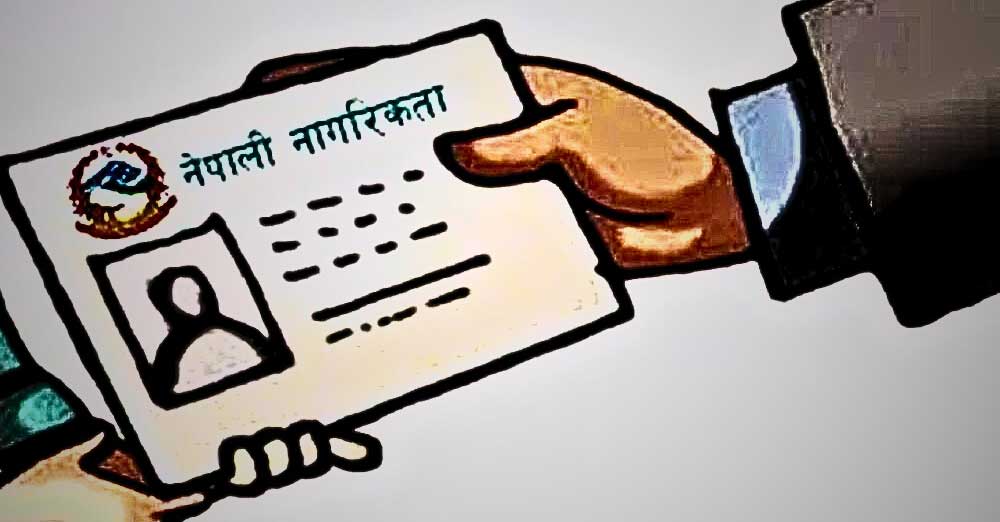 नेपाली नागरिकता